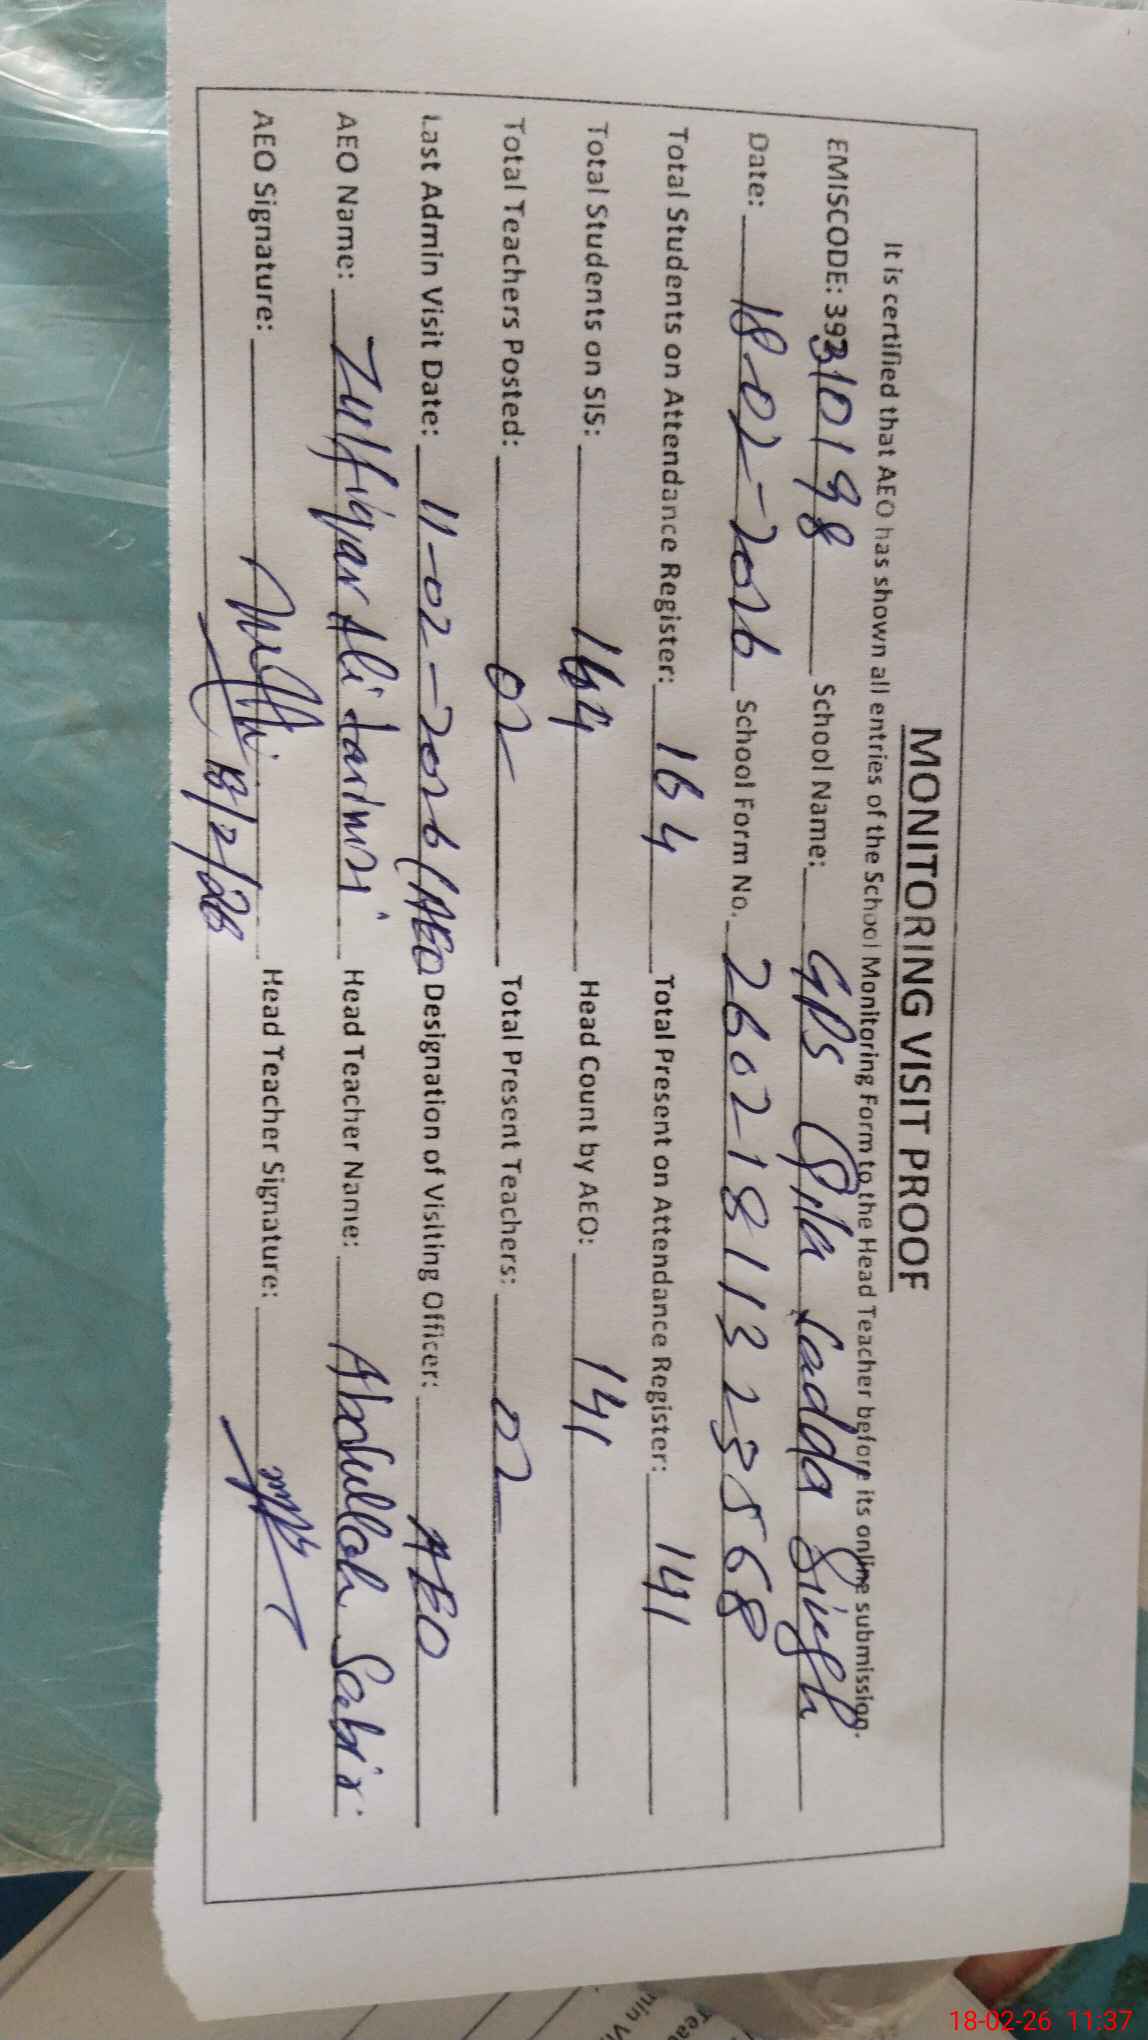 MONITORING VISIT PROOF
It is certified that AEO has shown all entries of the School Monitoring Form to the Head Teacher before its online submission.
EMISCODE: 39310198 School Name: GPS Qila Ladda Singh
Date: 18-02-2026 School Form No. 26021811323568
Total Students on Attendance Register: 164 Total Present on Attendance Register: 141
Total Students on SIS: 164 Head Count by AEO: 141
Total Teachers Posted: 02 Total Present Teachers: 02
Last Admin Visit Date: 11-02-2026 (AEO) Designation of Visiting Officer: AEO
AEO Name: Zulfiqar Ali Head Teacher Name: Abdullah Sabir
AEO Signature: 18/2/26 Head Teacher Signature:
18-02-26 11:37